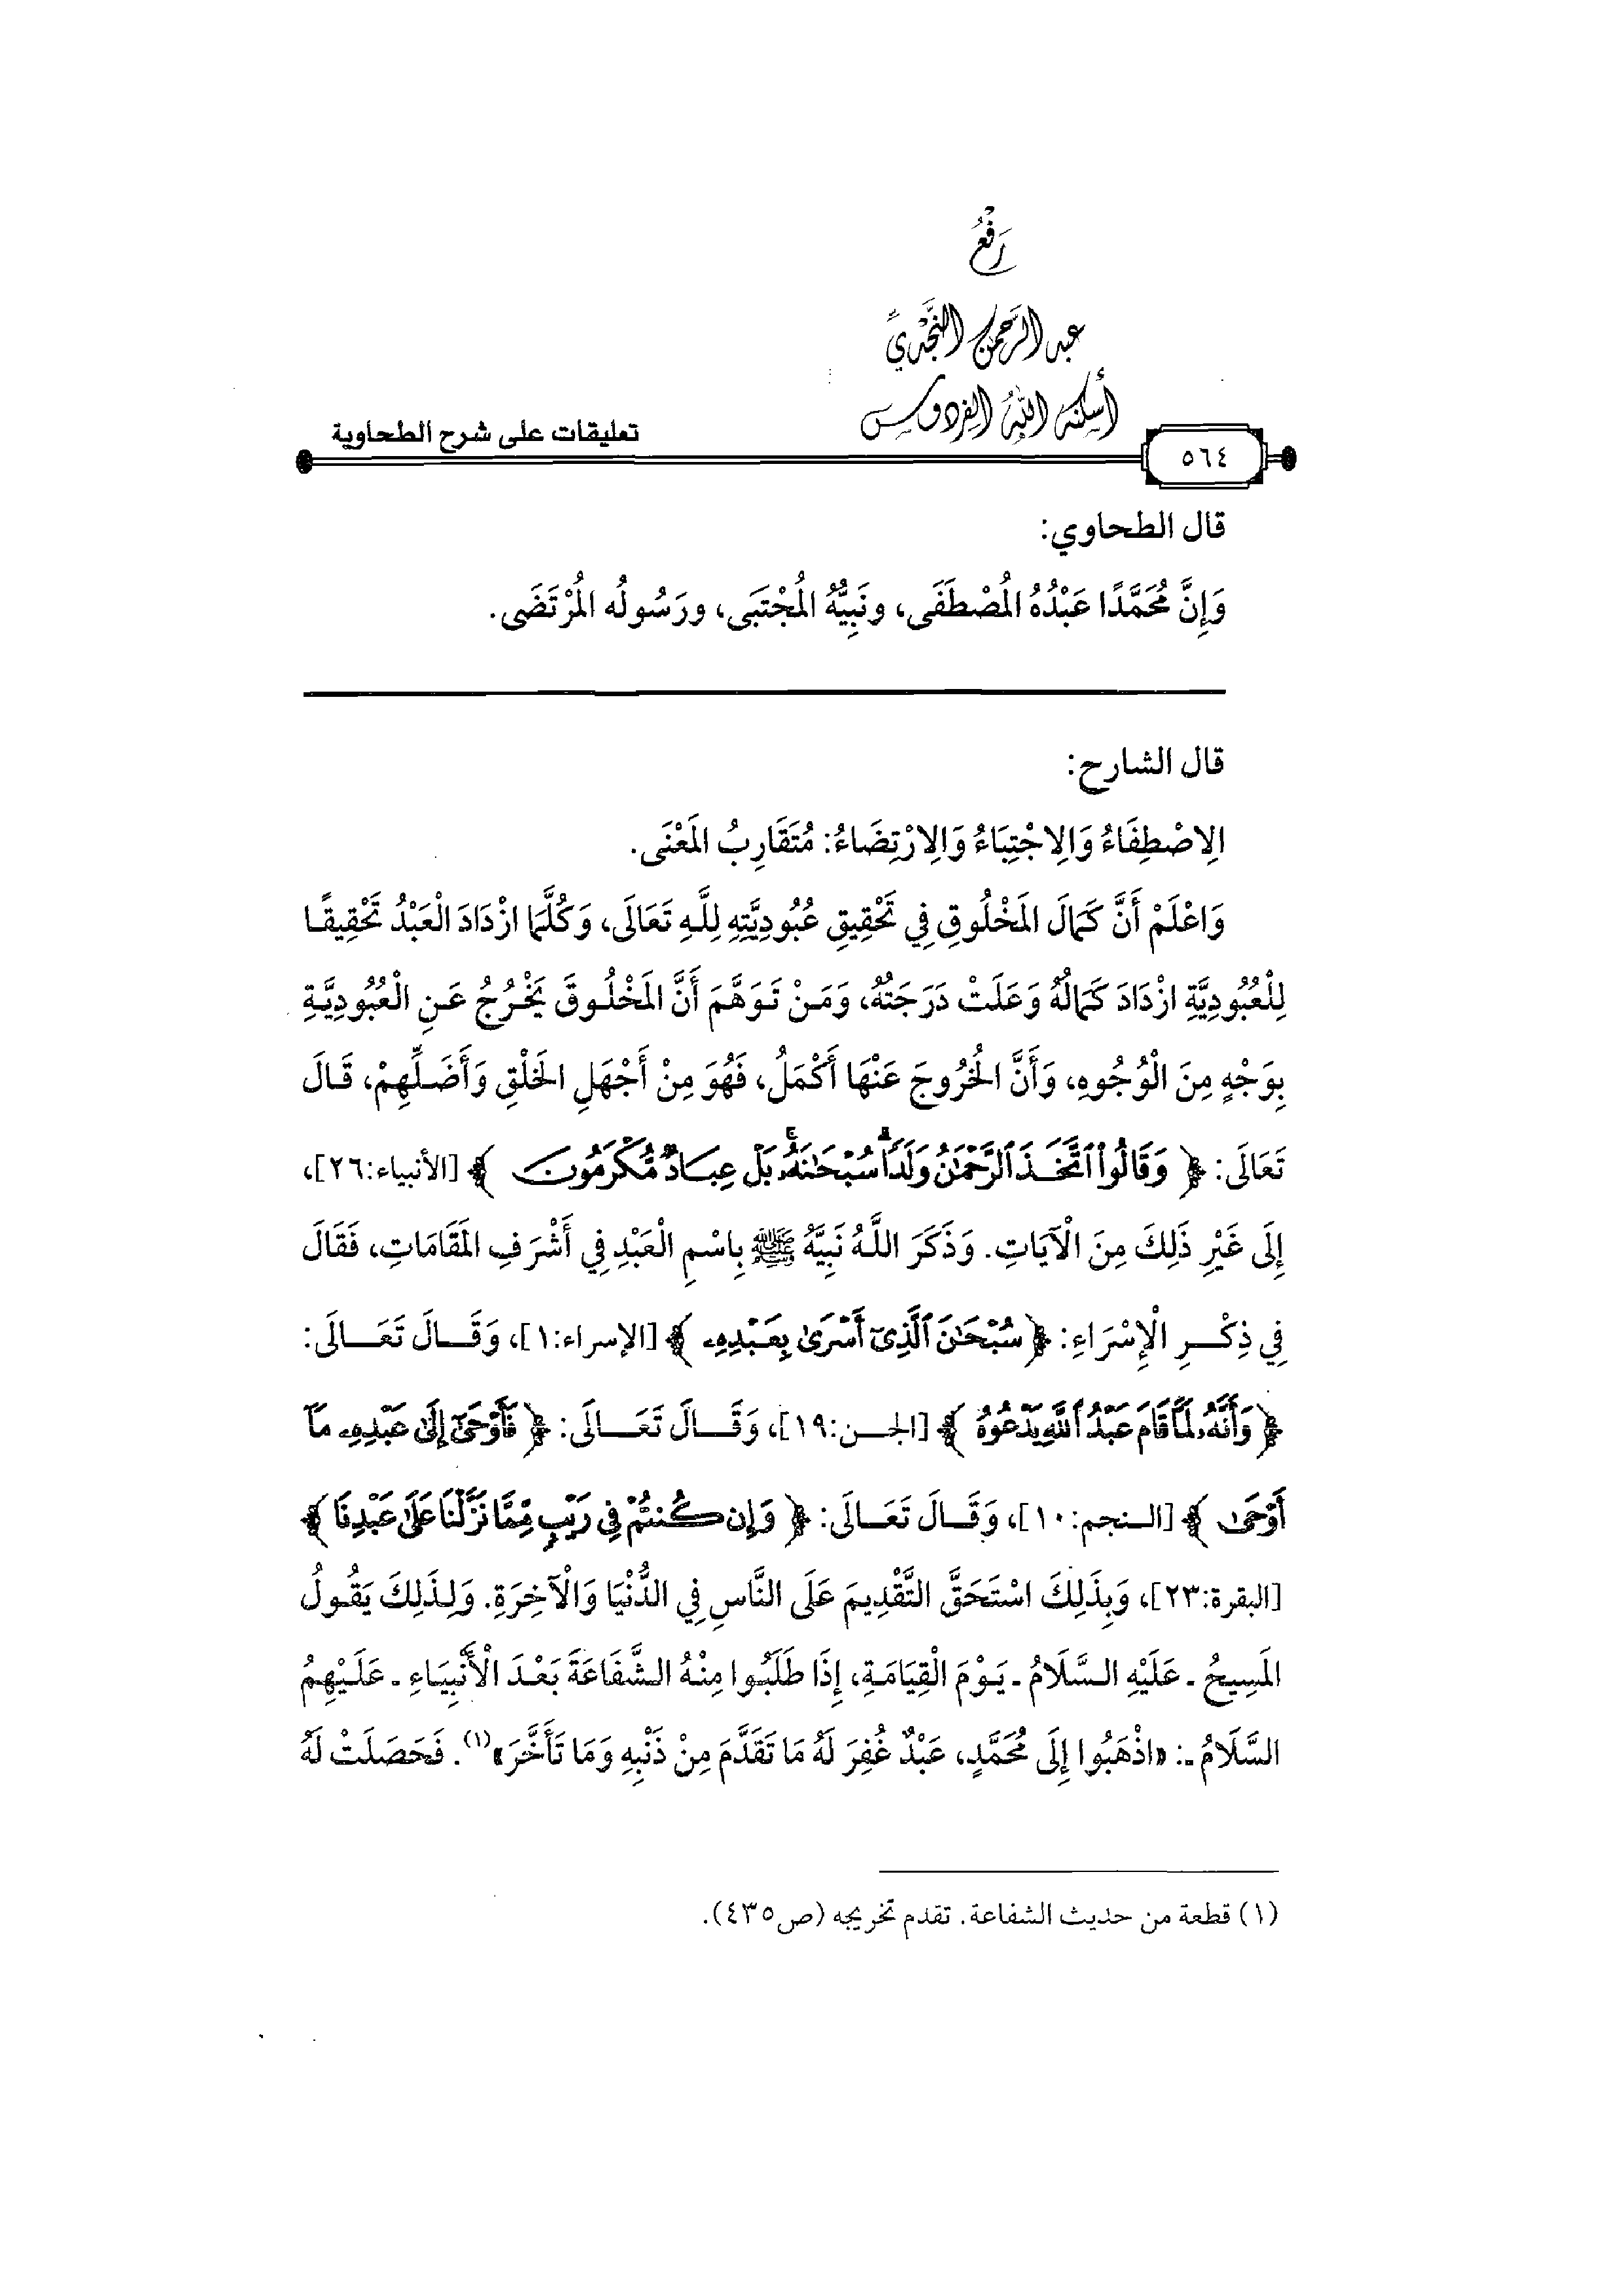 رَفْعُ
عبد الرَّحمن النَّجْديِّ
أسكنه اللهُ الفردوس
تعليقات على شرح الطحاوية
٥٦٤
قال الطحاوي:
وَإِنَّ مُحَمَّدًا عَبْدُهُ المُصْطَفَى، ونَبِيُّهُ المُجْتَبَى، ورَسُولُه المُرْتَضَى.
قال الشارح:
الِاصْطِفَاءُ وَالِاجْتِبَاءُ وَالِارْتِضَاءُ: مُتَقَارِبُ المَعْنَى.
وَاعْلَمْ أَنَّ كَمَالَ المَخْلُوقِ فِي تَحْقِيقِ عُبُودِيَّتِهِ لِلَّهِ تَعَالَى، وَكُلَّمَا ازْدَادَ الْعَبْدُ تَحْقِيقًا
لِلْعُبُودِيَّةِ ازْدَادَ كَمَالُهُ وَعَلَتْ دَرَجَتُهُ، وَمَنْ تَوَهَّمَ أَنَّ المَخْلُوقَ يَخْرُجُ عَنِ الْعُبُودِيَّةِ
بِوَجْهٍ مِنَ الْوُجُوهِ، وَأَنَّ الخُرُوجَ عَنْهَا أَكْمَلُ، فَهُوَ مِنْ أَجْهَلِ الخَلْقِ وَأَضَلِّهِمْ، قَالَ
تَعَالَى: ﴿ وَقَالُوا۟ ٱتَّخَذَ ٱلرَّحْمَٰنُ وَلَدًا ۗ سُبْحَٰنَهُۥ ۚ بَلْ عِبَادٌ مُّكْرَمُونَ ﴾ [الأنبياء:٢٦]،
إِلَى غَيْرِ ذَلِكَ مِنَ الْآيَاتِ. وَذَكَرَ اللَّهُ نَبِيَّهُ ﷺ بِاسْمِ الْعَبْدِ فِي أَشْرَفِ المَقَامَاتِ، فَقَالَ
فِي ذِكْرِ الْإِسْرَاءِ: ﴿ سُبْحَٰنَ ٱلَّذِىٓ أَسْرَىٰ بِعَبْدِهِۦ ﴾ [الإسراء:١]، وَقَالَ تَعَالَى:
﴿ وَأَنَّهُۥ لَمَّا قَامَ عَبْدُ ٱللَّهِ يَدْعُوهُ ﴾ [الجن:١٩]، وَقَالَ تَعَالَى: ﴿ فَأَوْحَىٰٓ إِلَىٰ عَبْدِهِۦ مَآ
أَوْحَىٰ ﴾ [النجم:١٠]، وَقَالَ تَعَالَى: ﴿ وَإِن كُنتُمْ فِى رَيْبٍ مِّمَّا نَزَّلْنَا عَلَىٰ عَبْدِنَا ﴾
[البقرة:٢٣]، وَبِذَلِكَ اسْتَحَقَّ التَّقْدِيمَ عَلَى النَّاسِ فِي الدُّنْيَا وَالْآخِرَةِ. وَلِذَلِكَ يَقُولُ
المَسِيحُ ـ عَلَيْهِ السَّلَامُ ـ يَوْمَ الْقِيَامَةِ، إِذَا طَلَبُوا مِنْهُ الشَّفَاعَةَ بَعْدَ الْأَنْبِيَاءِ ـ عَلَيْهِمُ
السَّلَامُ ـ: «اذْهَبُوا إِلَى مُحَمَّدٍ، عَبْدٌ غُفِرَ لَهُ مَا تَقَدَّمَ مِنْ ذَنْبِهِ وَمَا تَأَخَّرَ»(١). فَحَصَلَتْ لَهُ
(١) قطعة من حديث الشفاعة. تقدم تخريجه (ص٤٣٥).